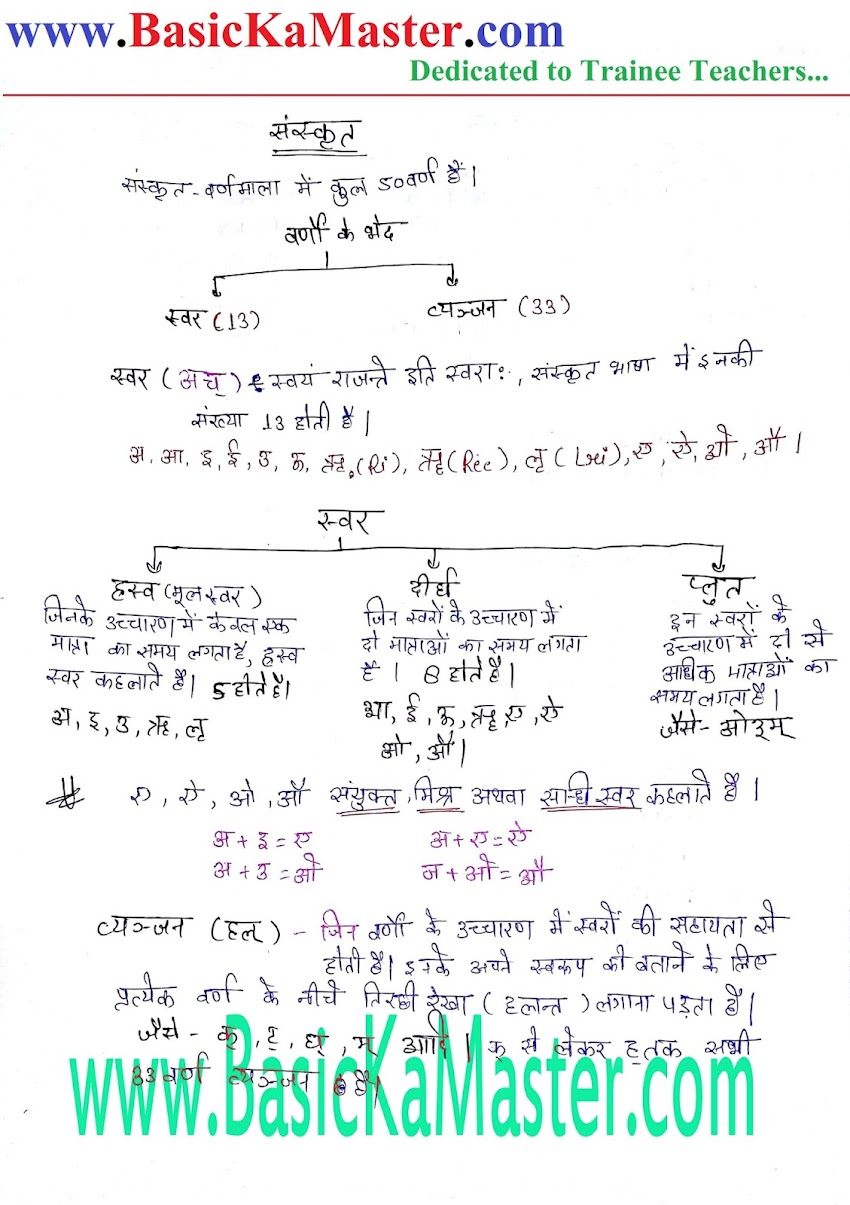 www.BasicKaMaster.com
Dedicated to Trainee Teachers...
संस्कृत
संस्कृत-वर्णमाला में कुल 50 वर्ण हैं।
वर्णों के भेद
स्वर (13) व्यञ्जन (33)
स्वर (अच्) - स्वयं राजन्ते इति स्वराः, संस्कृत भाषा में इनकी
संख्या 13 होती है।
अ, आ, इ, ई, उ, ऊ, ऋ, (Ri), ॠ (Ree), लृ (Lri), ए, ऐ, ओ, औ।
स्वर
ह्रस्व (मूल स्वर)
जिनके उच्चारण में केवल एक
मात्रा का समय लगता है, ह्रस्व
स्वर कहलाते हैं। 5 होते हैं।
अ, इ, उ, ऋ, लृ
दीर्घ
जिन स्वरों के उच्चारण में
दो मात्राओं का समय लगता
है। 8 होते हैं।
आ, ई, ऊ, ॠ, ए, ऐ
ओ, औ।
प्लुत
इन स्वरों के
उच्चारण में दो से
अधिक मात्राओं का
समय लगता है।
जैसे- ओ३म्
# ए, ऐ, ओ, औ संयुक्त, मिश्र अथवा सन्धि स्वर कहलाते हैं।
अ + इ = ए अ + ए = ऐ
अ + उ = ओ अ + ओ = औ
व्यञ्जन (हल्) - जिन वर्णों के उच्चारण में स्वरों की सहायता से
होती है। इनके अपने स्वरूप को बताने के लिए
प्रत्येक वर्ण के नीचे तिरछी रेखा (हलन्त) लगाना पड़ता है।
जैसे - क्, ट्, घ्, म् आदि। क् से लेकर ह् तक सभी
33 वर्ण व्यञ्जन हैं।
www.BasicKaMaster.com